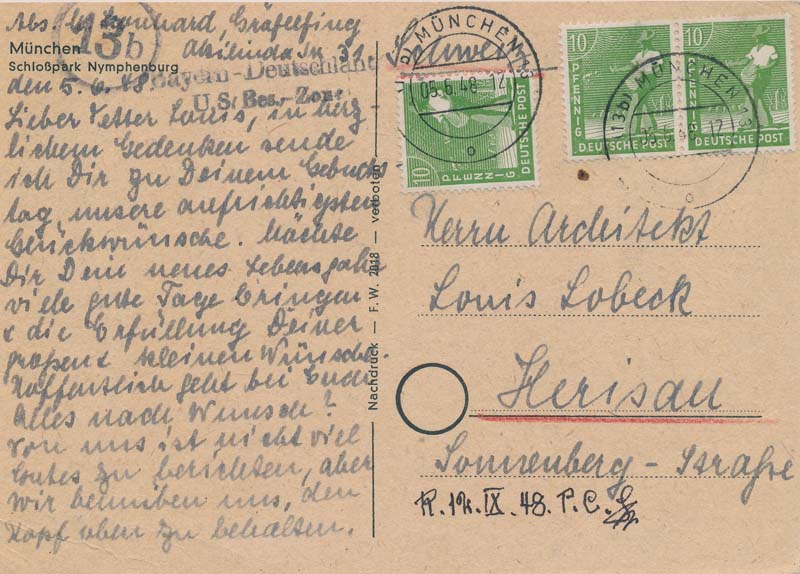 Abs. Leonhard, Gräfelfing
Akilinda Str. 31
13b
München
Schloßpark Nymphenburg
Bayern-Deutschland
U.S. Bes.-Zone
den 5.6.48.
Lieber Vetter Louis, in herz-
lichem Gedenken sende
ich Dir zu Deinem Geburts-
tag unsere aufrichtigsten
Glückwünsche. Möchte
Dir Dein neues Lebensjahr
viele gute Tage bringen
& die Erfüllung Deiner
großen & kleinen Wünsche.
Hoffentlich geht bei Euch
Alles nach Wunsch?
Von uns ist nicht viel
Gutes zu berichten, aber
wir bemühen uns, den
Kopf oben zu behalten.
Nachdruck — F. W. 2018 — verboten
Schweiz
MÜNCHEN 13
05.6.48. 12
10 PFENNIG DEUTSCHE POST
10 PFENNIG DEUTSCHE POST
10 PFENNIG DEUTSCHE POST
(13b) MÜNCHEN 13
12
Herrn Architekt
Louis Lobeck
Herisau
Sonnenberg-Straße
R. 14. IX. 48. P. C.